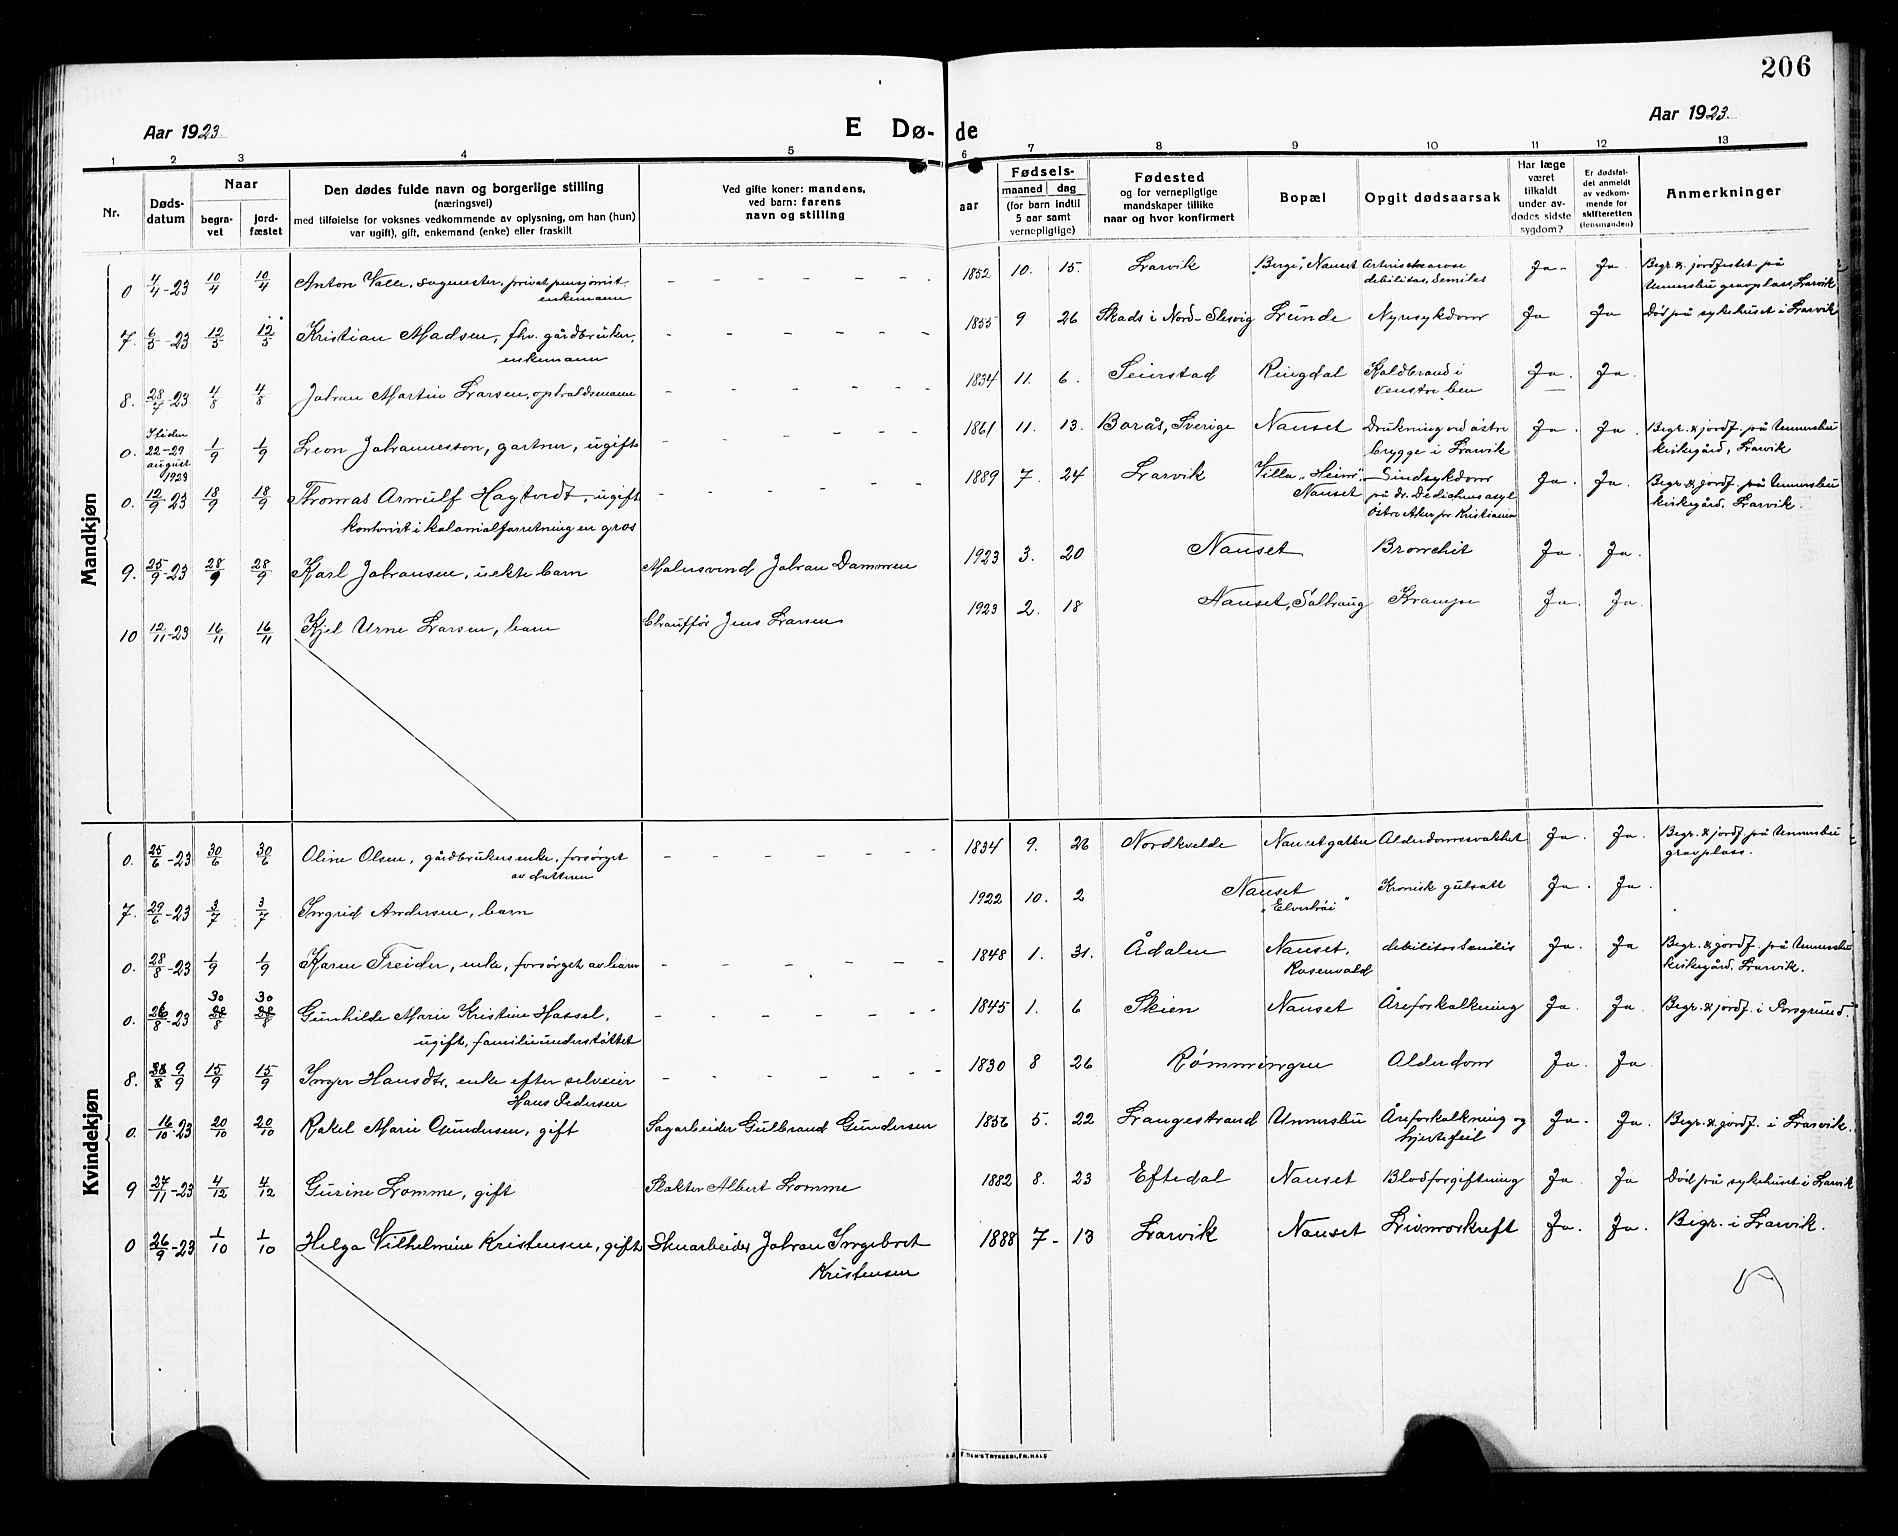 206
Aar 1923.
E Dø- de
Aar 1923.
1 2 3 4 5 6 7 8 9 10 11 12 13
Nr.
Døds-
datum
Naar
begra-
vet
jord-
fæstet
Den dødes fulde navn og borgerlige stilling
(næringsvei)
med tilføielse for voksnes vedkommende av oplysning, om han (hun)
var ugift), gift, enkemand (enke) eller fraskilt
Ved gifte koner: mandens,
ved barn: farens
navn og stilling
Fødsels-
aar
maaned dag
(for barn indtil
5 aar samt
vernepligtige)
Fødested
og for vernepligtige
mandskaper tillike
naar og hvor konfirmert
Bopæl
Opgit dødsaarsak
Har læge
været
tilkaldt
under av-
dødes sidste
sygdom?
Er dødsfal-
det anmeldt
av vedkom-
mende for
skifteretten
(lensmanden)
Anmerkninger
Mandkjøn
0 4/4-23 10/4 10/4 Anton Valle, sagmester, privat pensjonist, - - - - - - 1852 10. 15. Larvik "Berge", Nanset Ja - Ja. Begr. & jordfestet på
enkemann debilitas, senilis gravplass, Larvik
7. 6/5-23 12/5 12/5 Kristian Madsen, fhv. gårdbruker, - - - - - - 1855 9 26 Skads i Nord-Slesvig Lunde Nyresykdom Ja Ja Død på sykehuset i Larvik
enkemann
8. 28/7-23 4/8 4/8 Johan Martin Larsen, opholdsmann - - - - - - 1834 11. 6. Seierstad Ringdal Koldbrand i Ja. Ja.
venstre ben
0. Itiden 22-29 august 1923 1/9 1/9 Leon Johannesson, gartner, ugift - - - - - - 1861 11. 13. Borås, Sverige Nanset Drukning ved østre Ja. Ja. Begr. & jordf. på Undersbu
brygge i Larvik kirkegård, Larvik
0. 12/9-23 18/9 18/9 Thomas Arnulf Hagtvedt, ugift - - - - - - 1889 7. 24 Larvik Villa "Heim", Sindsykdom Ja. Ja. Begr. & jordf. på Undersbu
kontorist i kolonialforretning en gros Nanset på dr. Dedichens asyl kirkegård. Larvik.
Østre Aker pr Kristiania
9. 25/9-23 28/9 28/9 Karl Johansen, uekte barn Malersvend Johan Dammen 1923 3. 20 Nanset Bronchit Ja. Ja.
10 12/11-23 16/11 16/11 Kjel Urne Larsen, barn Chauffør Jens Larsen 1923 2. 18 Nanset, Solhaug Krampe Ja. Ja.
Kvindekjøn
0. 25/6-23 30/6 30/6 Oline Olsen, gårdbrukers enke, forsørget - - - - - - 1834 9. 26 Nordkvelde Nansetgatbu Alderdomssvakhet Ja. Ja. Begr. & jordf på Undersbu
av datteren gravplass.
7. 29/6-23 3/7 3/7 Ingrid Andersen, barn 1922 10. 2 Nanset Kronisk gulsott Ja. Ja.
"Elverhøi"
0. 28/8-23 1/9 1/9 Karen Treider, enke, forsørget av barn - - - - - - 1848 1. 31. Ådalen Nanset, debilitas senilis Ja. Ja Begr. & jordf. på Undersbu
Rosenvold kirkegård. Larvik.
30 30
0. 26/8-23 28/8 28/8 Gunhilde Marie Kristine Hassel, - - - - - - 1845 1. 6 Skien Nanset Åreforkalkning Ja. Ja. Begr. & jordf. i Porsgrund.
ugift, familieunderstøttet
8. 9/9 15/9 15/9 Inger Hansdtr, enke efter selveier - - - - - - 1830 8 26 Rømmingen Alderdom Ja. Ja.
Hans Pedersen
0. 16/10-23 20/10 20/10 Rakel Marie Gundersen, gift Sagarbeider Gulbrand Gundersen 1856 5. 22 Langestrand Undersbu Åreforkalkning og Ja. Ja. Begr. & jordf. i Larvik.
hjertefeil
9 27/11-23 4/12 4/12 Gurine Lomme, gift Slakter Albert Lomme 1882 8. 23 Eftedal Nanset Blodforgiftning Ja. Ja Død på sykehuset i Larvik
0 26/9-23 1/10 1/10 Helga Vilhelmine Kristensen, gift Stenarbeider Johan Ingebret 1888 7- 13 Larvik Nanset Livmorkreft Ja. Ja. Begr. i Larvik.
Kristensen